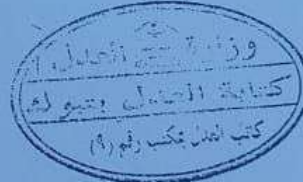 وزارة العدل
كتابة العدل بتبوك
كاتب العدل مكتب رقم (٩)